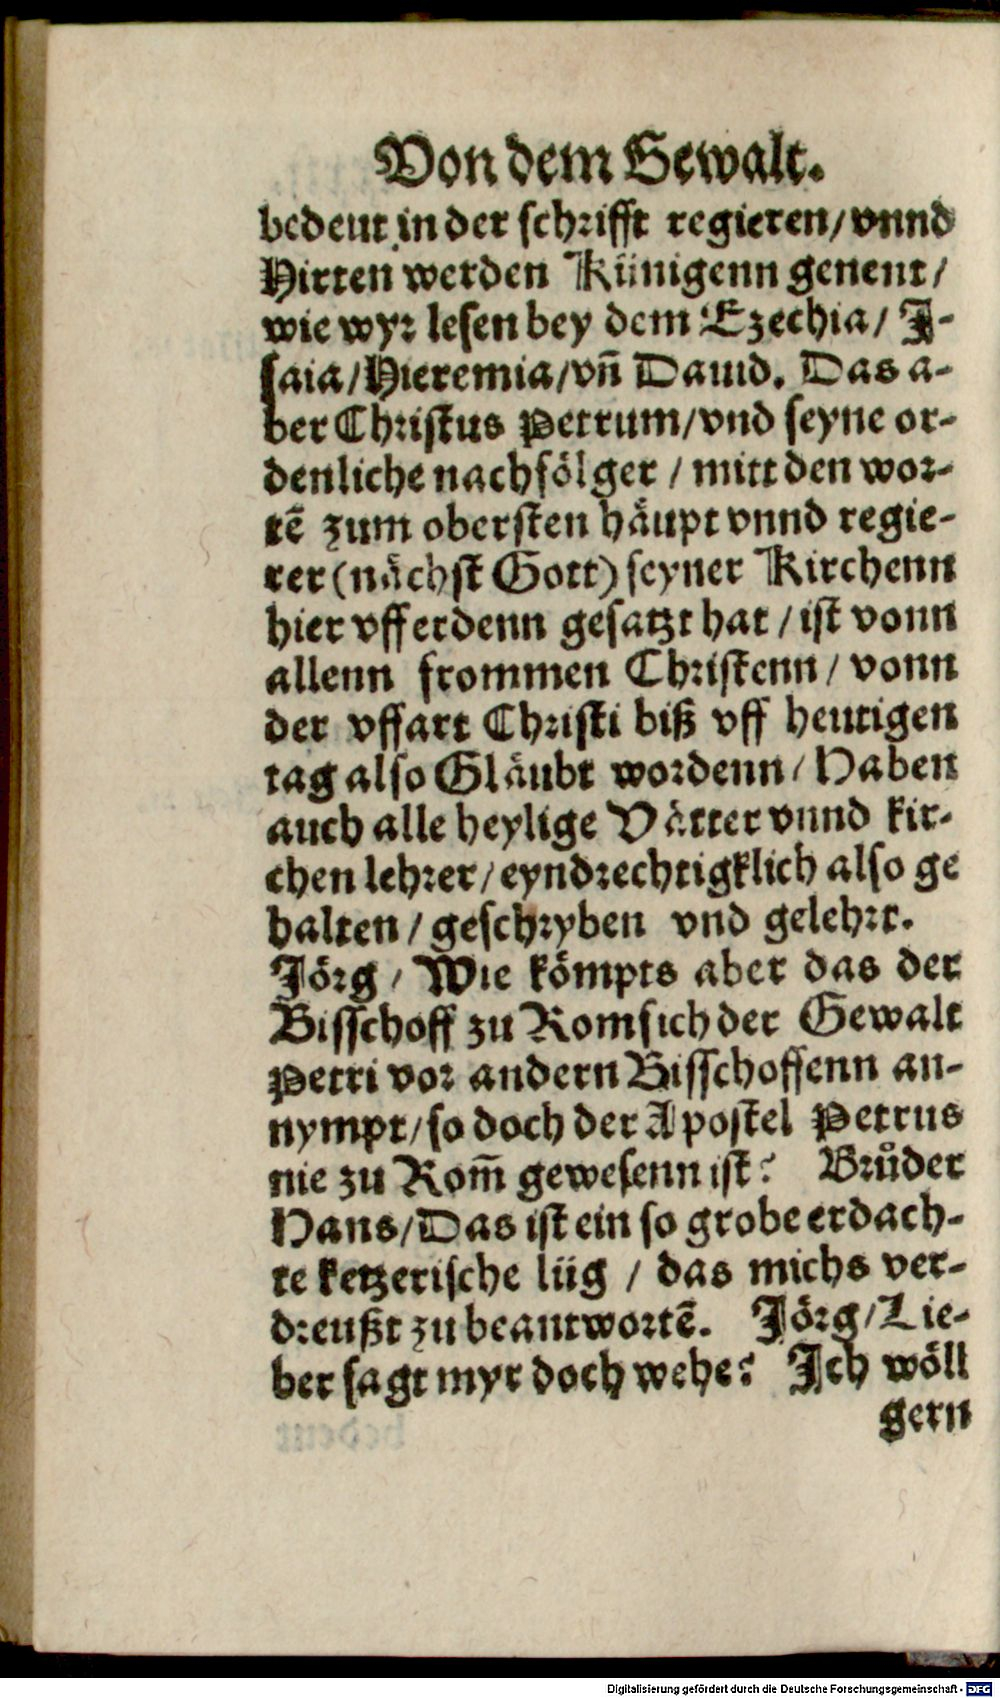 Von dem Gewalt.
bedeut in der schrifft regieren/ vnnd
Hirten werden Künigenn genent/
wie wyr lesen bey dem Ezechia/ J-
saia/Hieremia/vn̄ Dauid. Das a-
ber Christus Petrum/vnd seyne or-
denliche nachfölger / mitt den wor-
tē zum obersten häupt vnnd regie-
rer (nächst Gott) seyner Kirchenn
hier vff erdenn gesatzt hat / ist vonn
allenn frommen Christenn/ vonn
der vffart Christi biß vff heutigen
tag also Gläubt wordenn/ Haben
auch alle heylige Vätter vnnd kir-
chen lehrer/ eyndrechtigklich also ge
halten / geschryben vnd gelehrt.
Jörg / Wie kömpts aber das der
Bisschoff zu Rom sich der Gewalt
Petri vor andern Bisschoffenn an-
nympt/ so doch der Apostel Petrus
nie zu Rom̄ gewesenn ist? Brůder
Hans/Das ist ein so grobe erdach-
te ketzerische lüg / das michs ver-
dreußt zu beantwortē. Jörg/Lie-
ber sagt myr doch wehe? Ich wöll
gern
Digitalisierung gefördert durch die Deutsche Forschungsgemeinschaft - DFG